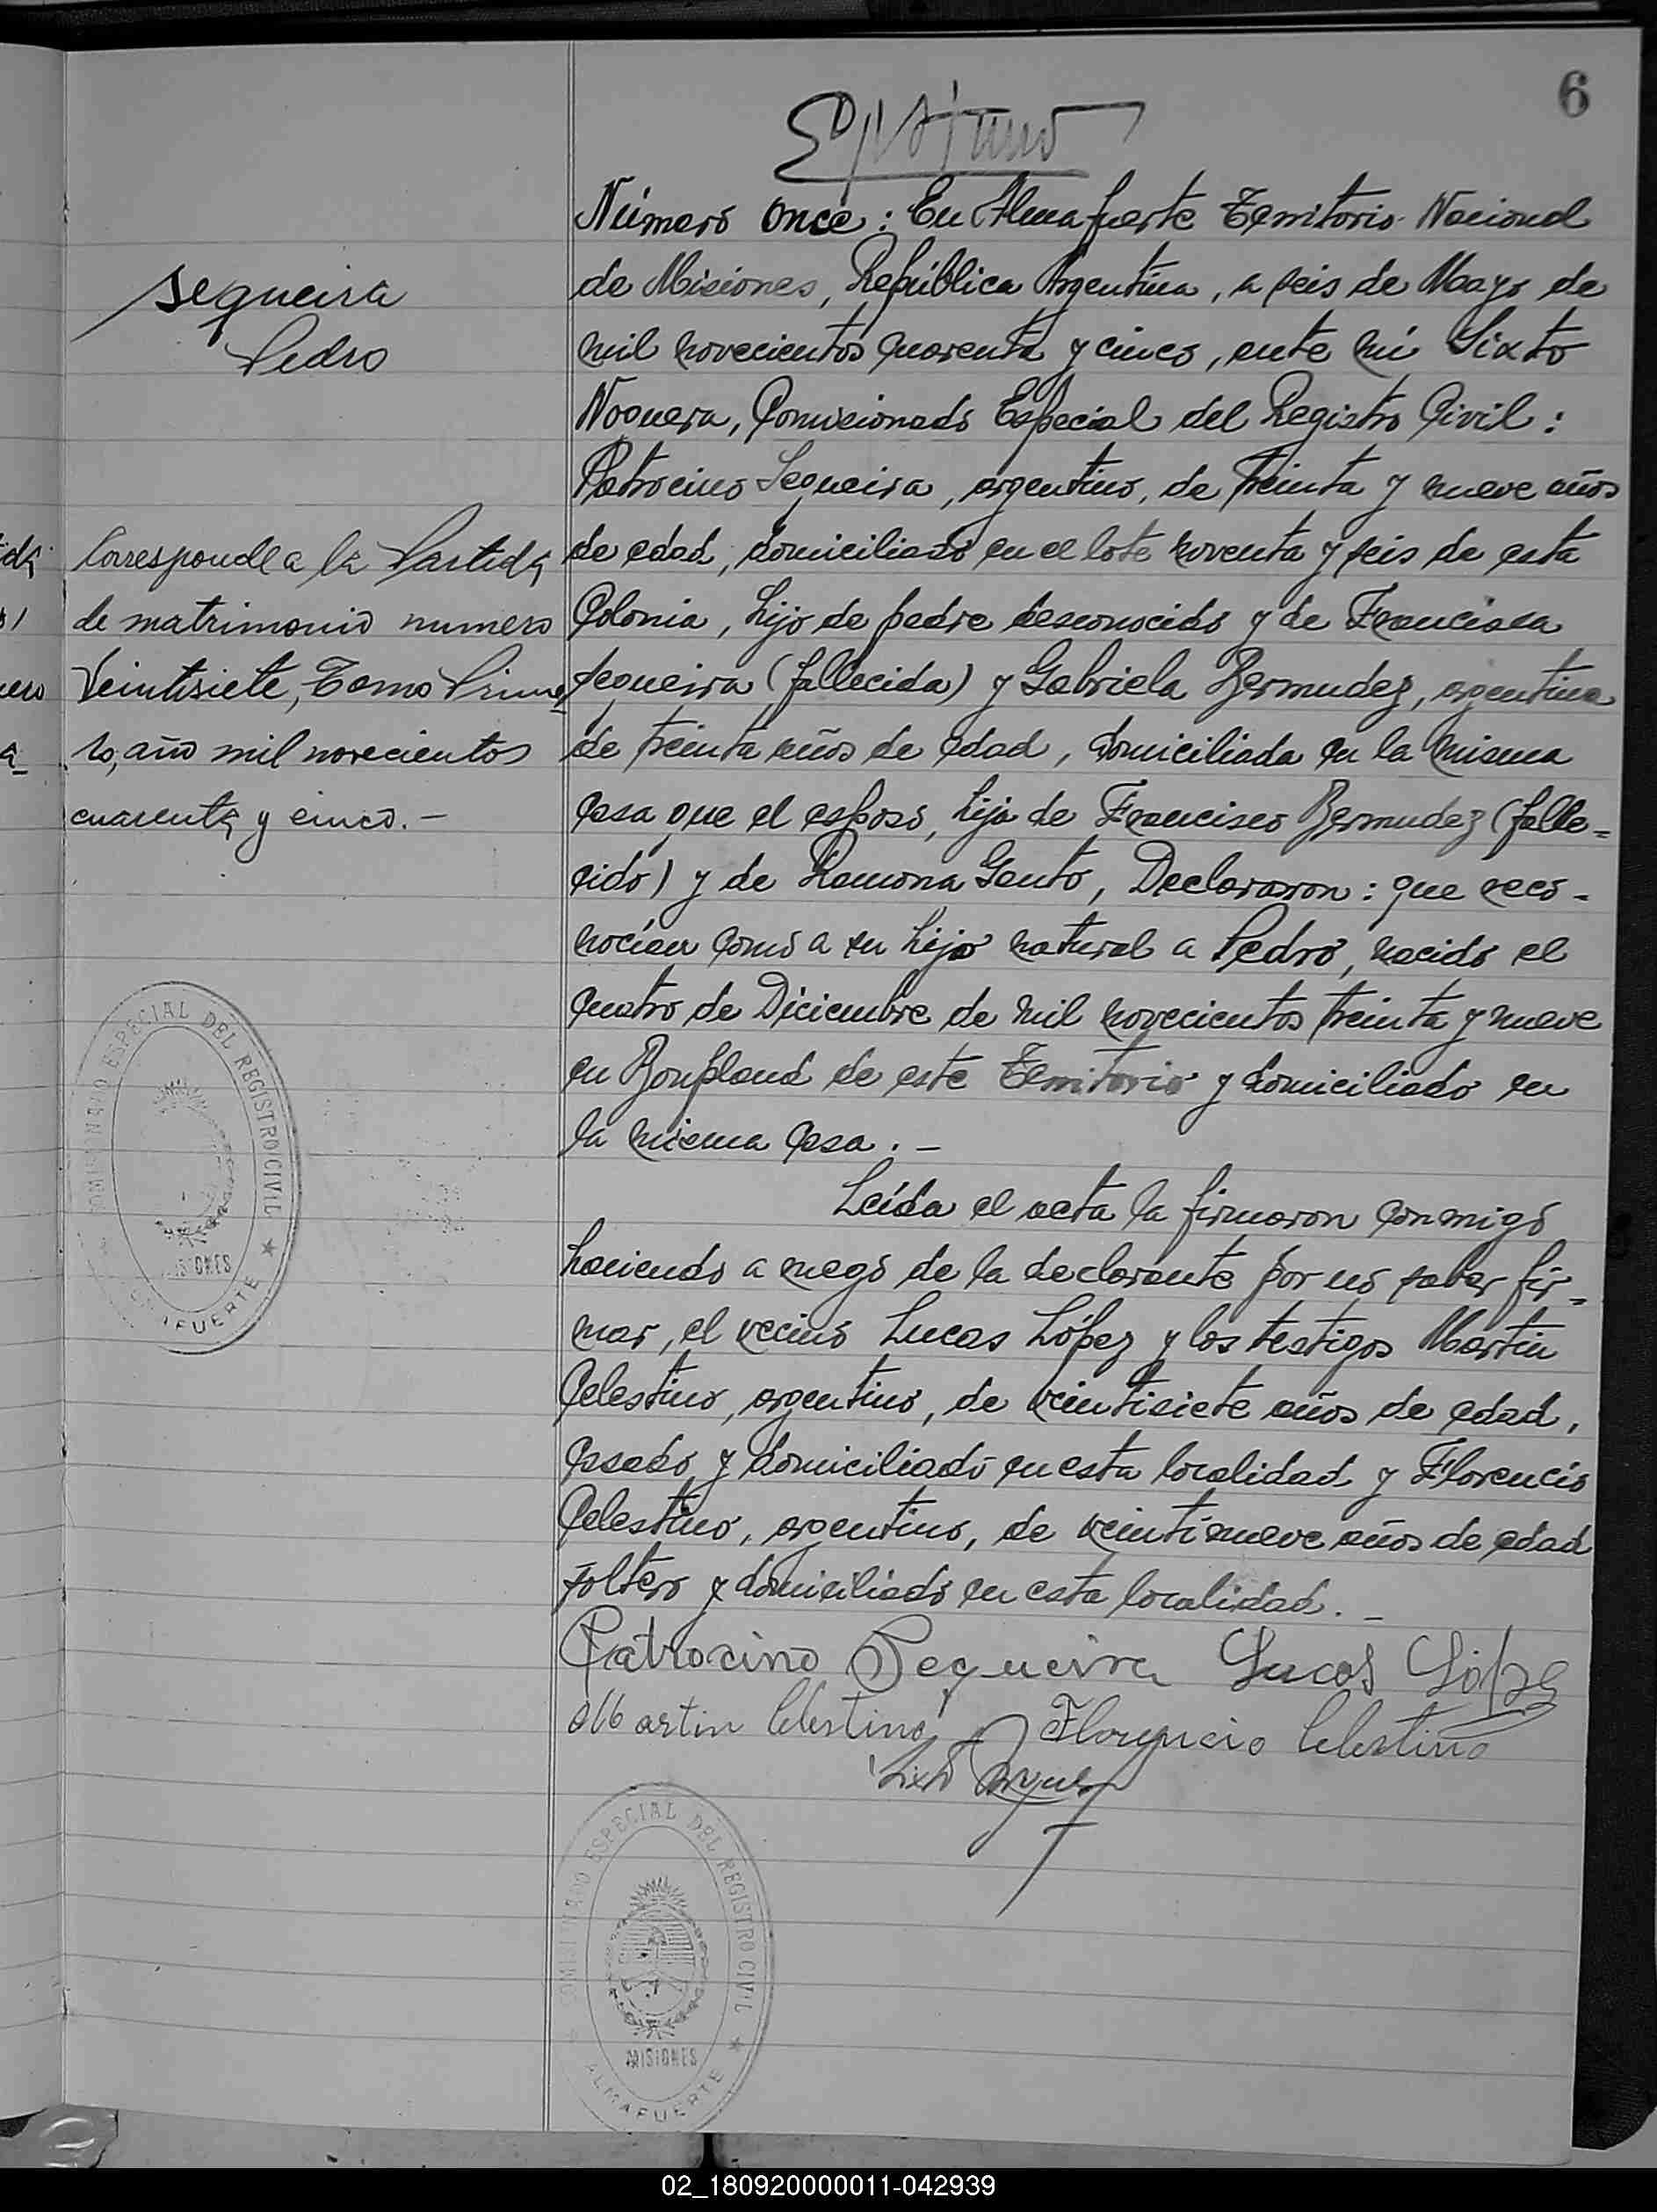 6
Número once: En Almafuerte Territorio Nacional
de Misiones, República Argentina, a seis de Mayo de
mil novecientos cuarenta y cinco, ante mí Sixto
Noguera, Comisionado Especial del Registro Civil:
Patrocino Sequeira, argentino, de treinta y nueve años
de edad, domiciliado en el lote noventa y seis de esta
Colonia, hijo de padre desconocido y de Francisca
Sequeira (fallecida) y Gabriela Bermudez, argentina
de treinta años de edad, domiciliada en la misma
casa que el esposo, hija de Francisco Bermudez (falle=
cido) y de Ramona Gauto, Declararon: que reco-
nocían como a su hijo natural a Pedro, nacido el
cuatro de Diciembre de mil novecientos treinta y nueve
en Bonpland de este Territorio y domiciliado en
la misma casa.-
Leída el acta la firmaron conmigo
haciendo a ruego de la declarante por no saber fir=
mar, el vecino Lucas López y los testigos Martin
Celestino, argentino, de veintisiete años de edad,
casado y domiciliado en esta localidad y Florencio
Celestino, argentino, de veintinueve años de edad
soltero y domiciliado en esta localidad.-
Patrocino Sequeira Lucas López
Martin Celestino Florencio Celestino
Sixto Noguera
Sequeira
Pedro
Corresponde a la Partida
de matrimonio numero
Veintisiete, Tomo Prime
ro, año mil novecientos
cuarenta y cinco.-
COMISIONADO ESPECIAL DEL REGISTRO CIVIL
MISIONES
ALMAFUERTE
COMISIONADO ESPECIAL DEL REGISTRO CIVIL
MISIONES
ALMAFUERTE
02_180920000011-042939